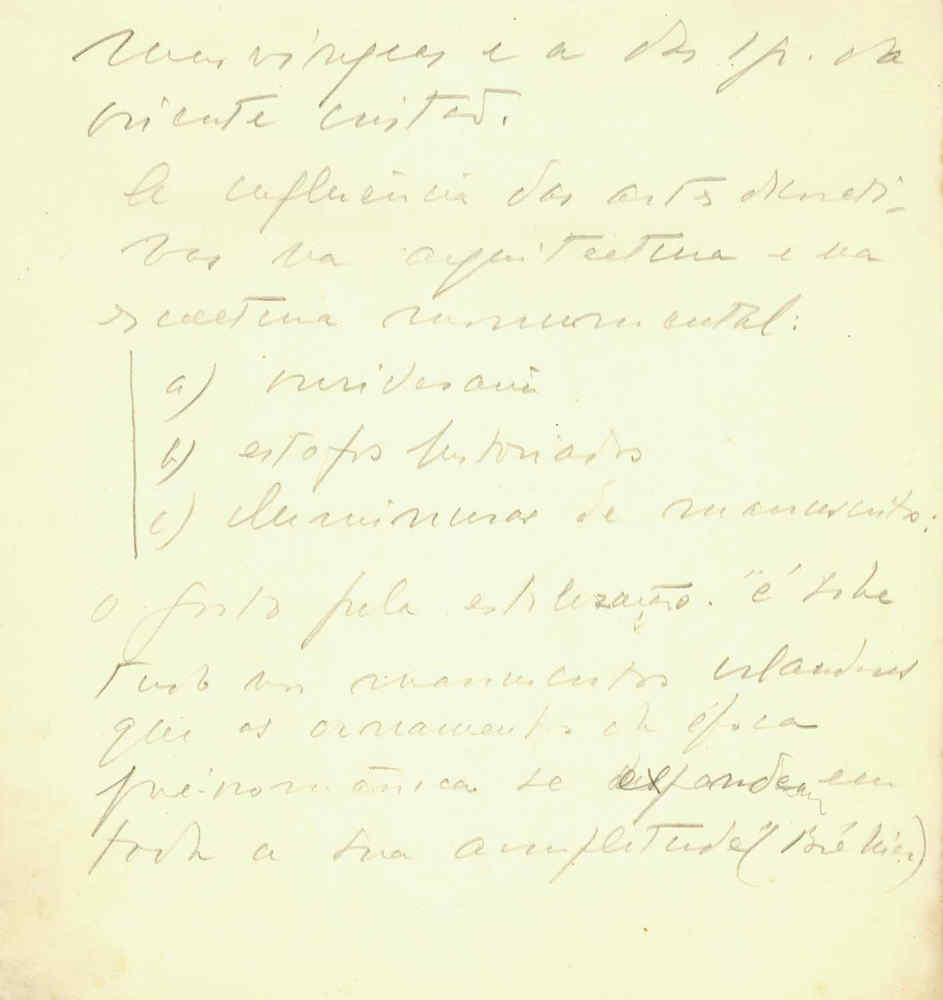 merovíngeas e a das ig. do
oriente cristão.
A influência das artes decorati-
vas na arquitectura e na
escultura monumental:
a) ourivesaria
b) estofos historiados
c) iluminuras de manuscritos.
O gosto pela estilização. "é sobre
tudo nos manuscritos irlandeses
que os ornamentos da época
pré-românica se expandem em
toda a sua amplitude" (Bréhier)